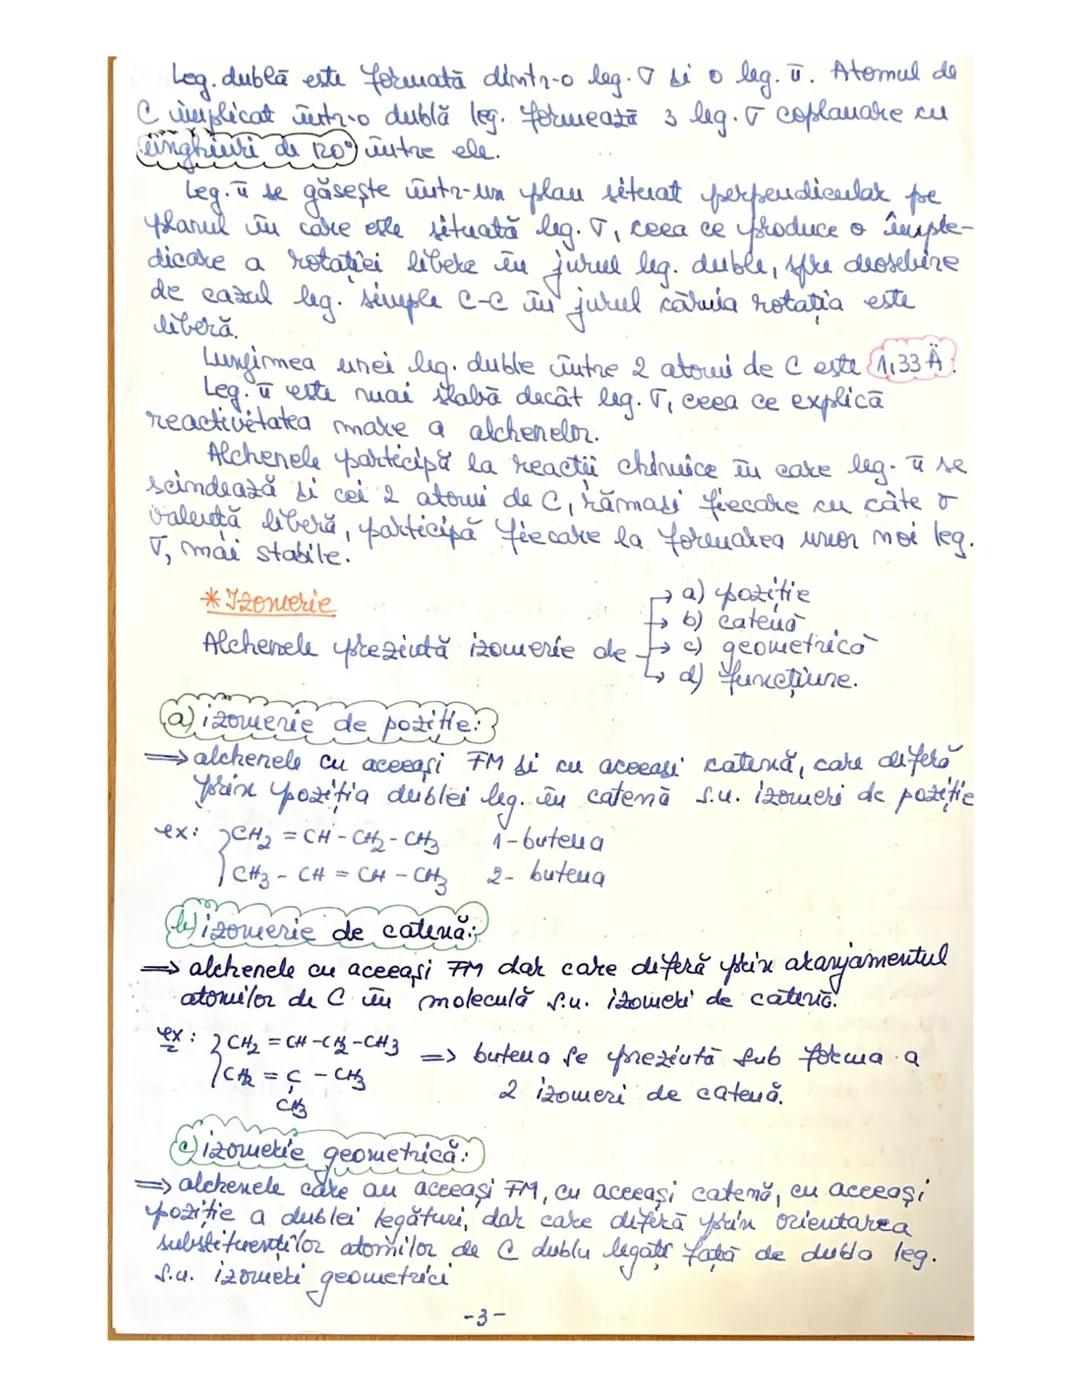 Leg. dublă este formată dintr-o leg. σ și o leg. π. Atomul de
C implicat într-o dublă leg. formează 3 leg. σ coplanare cu
unghiuri de 120° între ele.
Leg. π se găsește într-un plan situat perpendicular pe
planul în care este situată leg. σ, ceea ce produce o împie-
dicare a rotației libere în jurul leg. duble, spre deosebire
de cazul leg. simple C-C în jurul căruia rotația este
liberă.
Lungimea unei leg. duble între 2 atomi de C este 1,33 Å.
Leg. π este mai slabă decât leg. σ, ceea ce explică
reactivitatea mare a alchenelor.
Alchenele participă la reacții chimice în care leg. π se
scindează și cei 2 atomi de C, rămași fiecare cu câte o
valență liberă, participă fiecare la formarea unor noi leg.
σ, mai stabile.
* Izomerie
→ a) poziție
→ b) catenă
Alchenele prezintă izomerie de → c) geometrică
→ d) funcțiune.
a) izomerie de poziție:
⇒ alchenele cu aceeași FM și cu aceeași catenă, care diferă
prin poziția dublei leg. în catenă s.n. izomeri de poziție
ex: CH₂ = CH - CH₂ - CH₃ 1-butena
CH₃ - CH = CH - CH₃ 2- butena
b) izomerie de catenă:
⇒ alchenele cu aceeași FM dar care diferă prin aranjamentul
atomilor de C în moleculă s.n. izomeri de catenă.
ex: CH₂ = CH - CH₂ - CH₃ => butena se prezintă sub forma a
CH₂ = C - CH₃ 2 izomeri de catenă.
CH₃
c) izomerie geometrică:
⇒ alchenele care au aceeași FM, cu aceeași catenă, cu aceeași
poziție a dublei legături, dar care diferă prin orientarea
substituenților atomilor de C dublu legați față de dubla leg.
s.n. izomeri geometrici
-3-